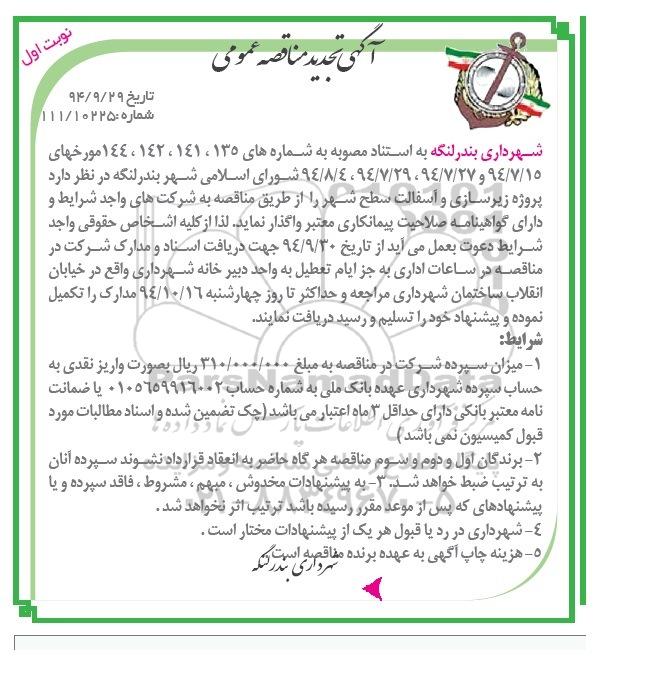 نوبت اول
آگهی تجدید مناقصه عمومی
تاریخ ۹۴/۹/۲۹
شماره:۱۱۱/۱۰۲۲۵
شهرداری بندرلنگه به استناد مصوبه به شماره های ۱۳۵ ، ۱۴۱ ، ۱۴۲ ، ۱۴۴مورخهای
۹۴/۷/۱۵ و ۹۴/۷/۲۷ ، ۹۴/۷/۲۹ ، ۹۴/۸/۴ شورای اسلامی شهر بندرلنگه در نظر دارد
پروژه زیرسازی و آسفالت سطح شهر را از طریق مناقصه به شرکت های واجد شرایط و
دارای گواهینامه صلاحیت پیمانکاری معتبر واگذار نماید. لذا ازکلیه اشخاص حقوقی واجد
شرایط دعوت بعمل می آید از تاریخ ۹۴/۹/۳۰ جهت دریافت اسناد و مدارک شرکت در
مناقصه در ساعات اداری به جز ایام تعطیل به واحد دبیر خانه شهرداری واقع در خیابان
انقلاب ساختمان شهرداری مراجعه و حداکثر تا روز چهارشنبه ۹۴/۱۰/۱۶ مدارک را تکمیل
نموده و پیشنهاد خود را تسلیم و رسید دریافت نمایند.
شرایط:
۱- میزان سپرده شرکت در مناقصه به مبلغ ۳۱۰/۰۰۰/۰۰۰ ریال بصورت واریز نقدی به
حساب سپرده شهرداری عهده بانک ملی به شماره حساب ۰۱۰۵۶۵۹۹۱۶۰۰۲ یا ضمانت
نامه معتبر بانکی دارای حداقل ۳ ماه اعتبار می باشد (چک تضمین شده و اسناد مطالبات مورد
قبول کمیسیون نمی باشد)
۲- برندگان اول و دوم و سوم مناقصه هر گاه حاضر به انعقاد قرارداد نشوند سپرده آنان
به ترتیب ضبط خواهد شد. ۳- به پیشنهادات مخدوش ، مبهم ، مشروط ، فاقد سپرده و یا
پیشنهادهای که پس از موعد مقرر رسیده باشد ترتیب اثر نخواهد شد .
۴- شهرداری در رد یا قبول هر یک از پیشنهادات مختار است .
۵- هزینه چاپ آگهی به عهده برنده مناقصه است
شهرداری بندرلنگه
ParsNamadData